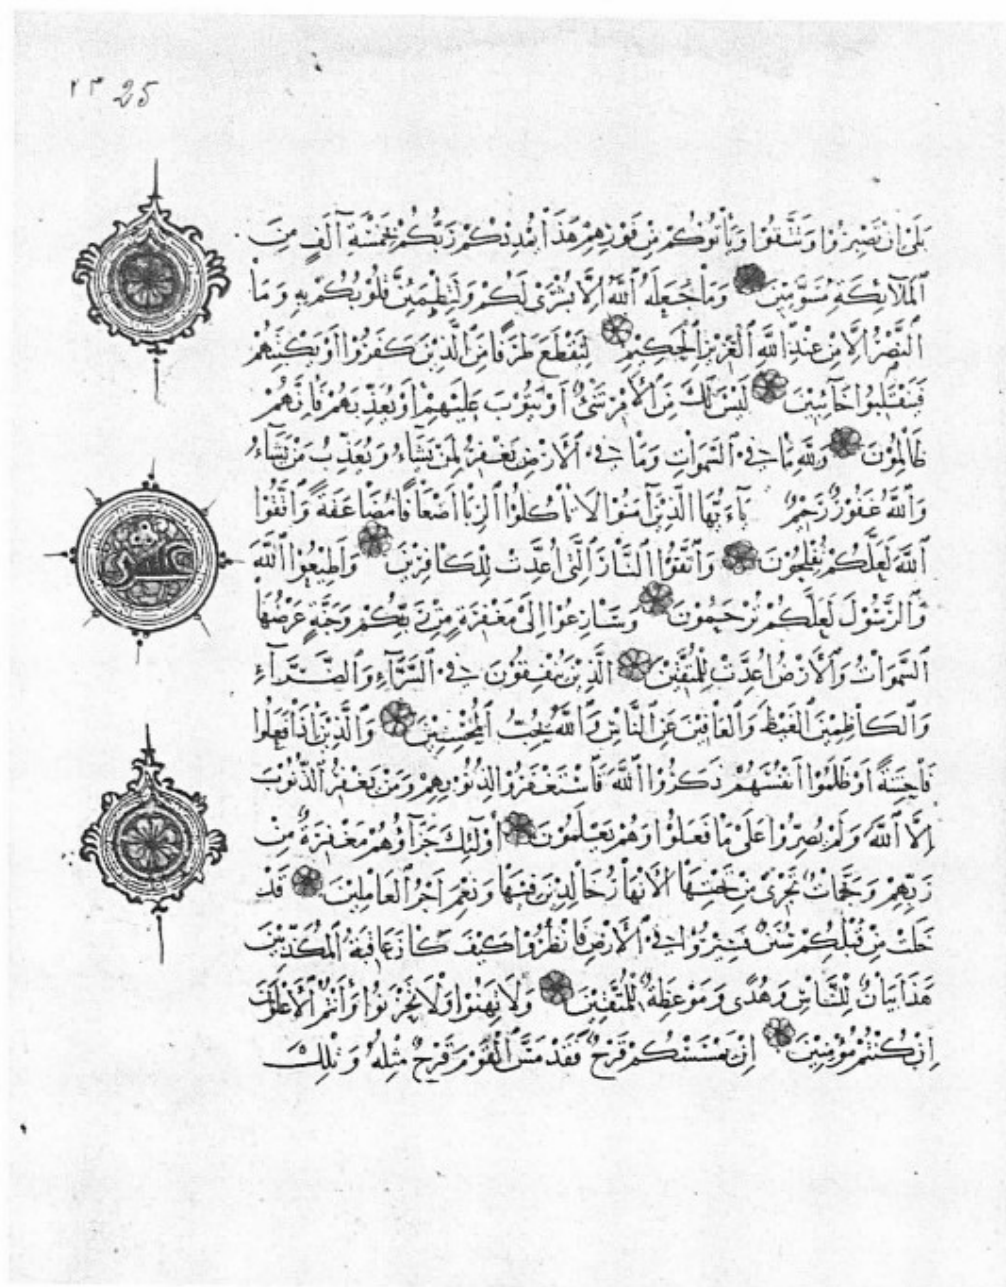 ٢٣ 25
بَلَى إِن تَصْبِرُوا وَتَتَّقُوا وَيَأْتُوكُمْ مِنْ فَوْرِهِمْ هَذَا يُمْدِدْكُمْ رَبُّكُمْ بِخَمْسَةِ آلَفٍ مِنَ
الْمَلَائِكَةِ مُسَوِّمِينَ وَمَا جَعَلَهُ اللَّهُ إِلَّا بُشْرَى لَكُمْ وَلِتَطْمَئِنَّ قُلُوبُكُمْ بِهِ وَمَا
النَّصْرُ إِلَّا مِنْ عِنْدِ اللَّهِ الْعَزِيزِ الْحَكِيمِ لِيَقْطَعَ طَرَفًا مِنَ الَّذِينَ كَفَرُوا أَوْ يَكْبِتَهُمْ
فَيَنْقَلِبُوا خَائِبِينَ لَيْسَ لَكَ مِنَ الْأَمْرِ شَيْءٌ أَوْ يَتُوبَ عَلَيْهِمْ أَوْ يُعَذِّبَهُمْ فَإِنَّهُمْ
ظَالِمُونَ وَلِلَّهِ مَا فِي السَّمَوَاتِ وَمَا فِي الْأَرْضِ يَغْفِرُ لِمَنْ يَشَاءُ وَيُعَذِّبُ مَنْ يَشَاءُ
وَاللَّهُ غَفُورٌ رَحِيمٌ يَاءَيُّهَا الَّذِينَ آمَنُوا لَا تَأْكُلُوا الرِّبَا أَضْعَافًا مُضَاعَفَةً وَاتَّقُوا
اللَّهَ لَعَلَّكُمْ تُفْلِحُونَ وَاتَّقُوا النَّارَ الَّتِي أُعِدَّتْ لِلْكَافِرِينَ وَأَطِيعُوا اللَّهَ
وَالرَّسُولَ لَعَلَّكُمْ تُرْحَمُونَ وَسَارِعُوا إِلَى مَغْفِرَةٍ مِنْ رَبِّكُمْ وَجَنَّةٍ عَرْضُهَا
السَّمَوَاتُ وَالْأَرْضُ أُعِدَّتْ لِلْمُتَّقِينَ الَّذِينَ يُنْفِقُونَ فِي السَّرَّآءِ وَالضَّرَّآءِ
وَالْكَاظِمِينَ الْغَيْظَ وَالْعَافِينَ عَنِ النَّاسِ وَاللَّهُ يُحِبُّ الْمُحْسِنِينَ وَالَّذِينَ إِذَا فَعَلُوا
فَاحِشَةً أَوْ ظَلَمُوا أَنْفُسَهُمْ ذَكَرُوا اللَّهَ فَاسْتَغْفَرُوا لِذُنُوبِهِمْ وَمَنْ يَغْفِرُ الذُّنُوبَ
إِلَّا اللَّهُ وَلَمْ يُصِرُّوا عَلَى مَا فَعَلُوا وَهُمْ يَعْلَمُونَ أُولَئِكَ جَزَآؤُهُمْ مَغْفِرَةٌ مِنْ
رَبِّهِمْ وَجَنَّاتٌ تَجْرِي مِنْ تَحْتِهَا الْأَنْهَارُ خَالِدِينَ فِيهَا وَنِعْمَ أَجْرُ الْعَامِلِينَ قَدْ
خَلَتْ مِنْ قَبْلِكُمْ سُنَنٌ فَسِيرُوا فِي الْأَرْضِ فَانْظُرُوا كَيْفَ كَانَ عَاقِبَةُ الْمُكَذِّبِينَ
هَذَا بَيَانٌ لِلنَّاسِ وَهُدًى وَمَوْعِظَةٌ لِلْمُتَّقِينَ وَلَا تَهِنُوا وَلَا تَحْزَنُوا وَأَنْتُمُ الْأَعْلَوْنَ
إِنْ كُنْتُمْ مُؤْمِنِينَ إِنْ يَمْسَسْكُمْ قَرْحٌ فَقَدْ مَسَّ الْقَوْمَ قَرْحٌ مِثْلُهُ وَتِلْكَ